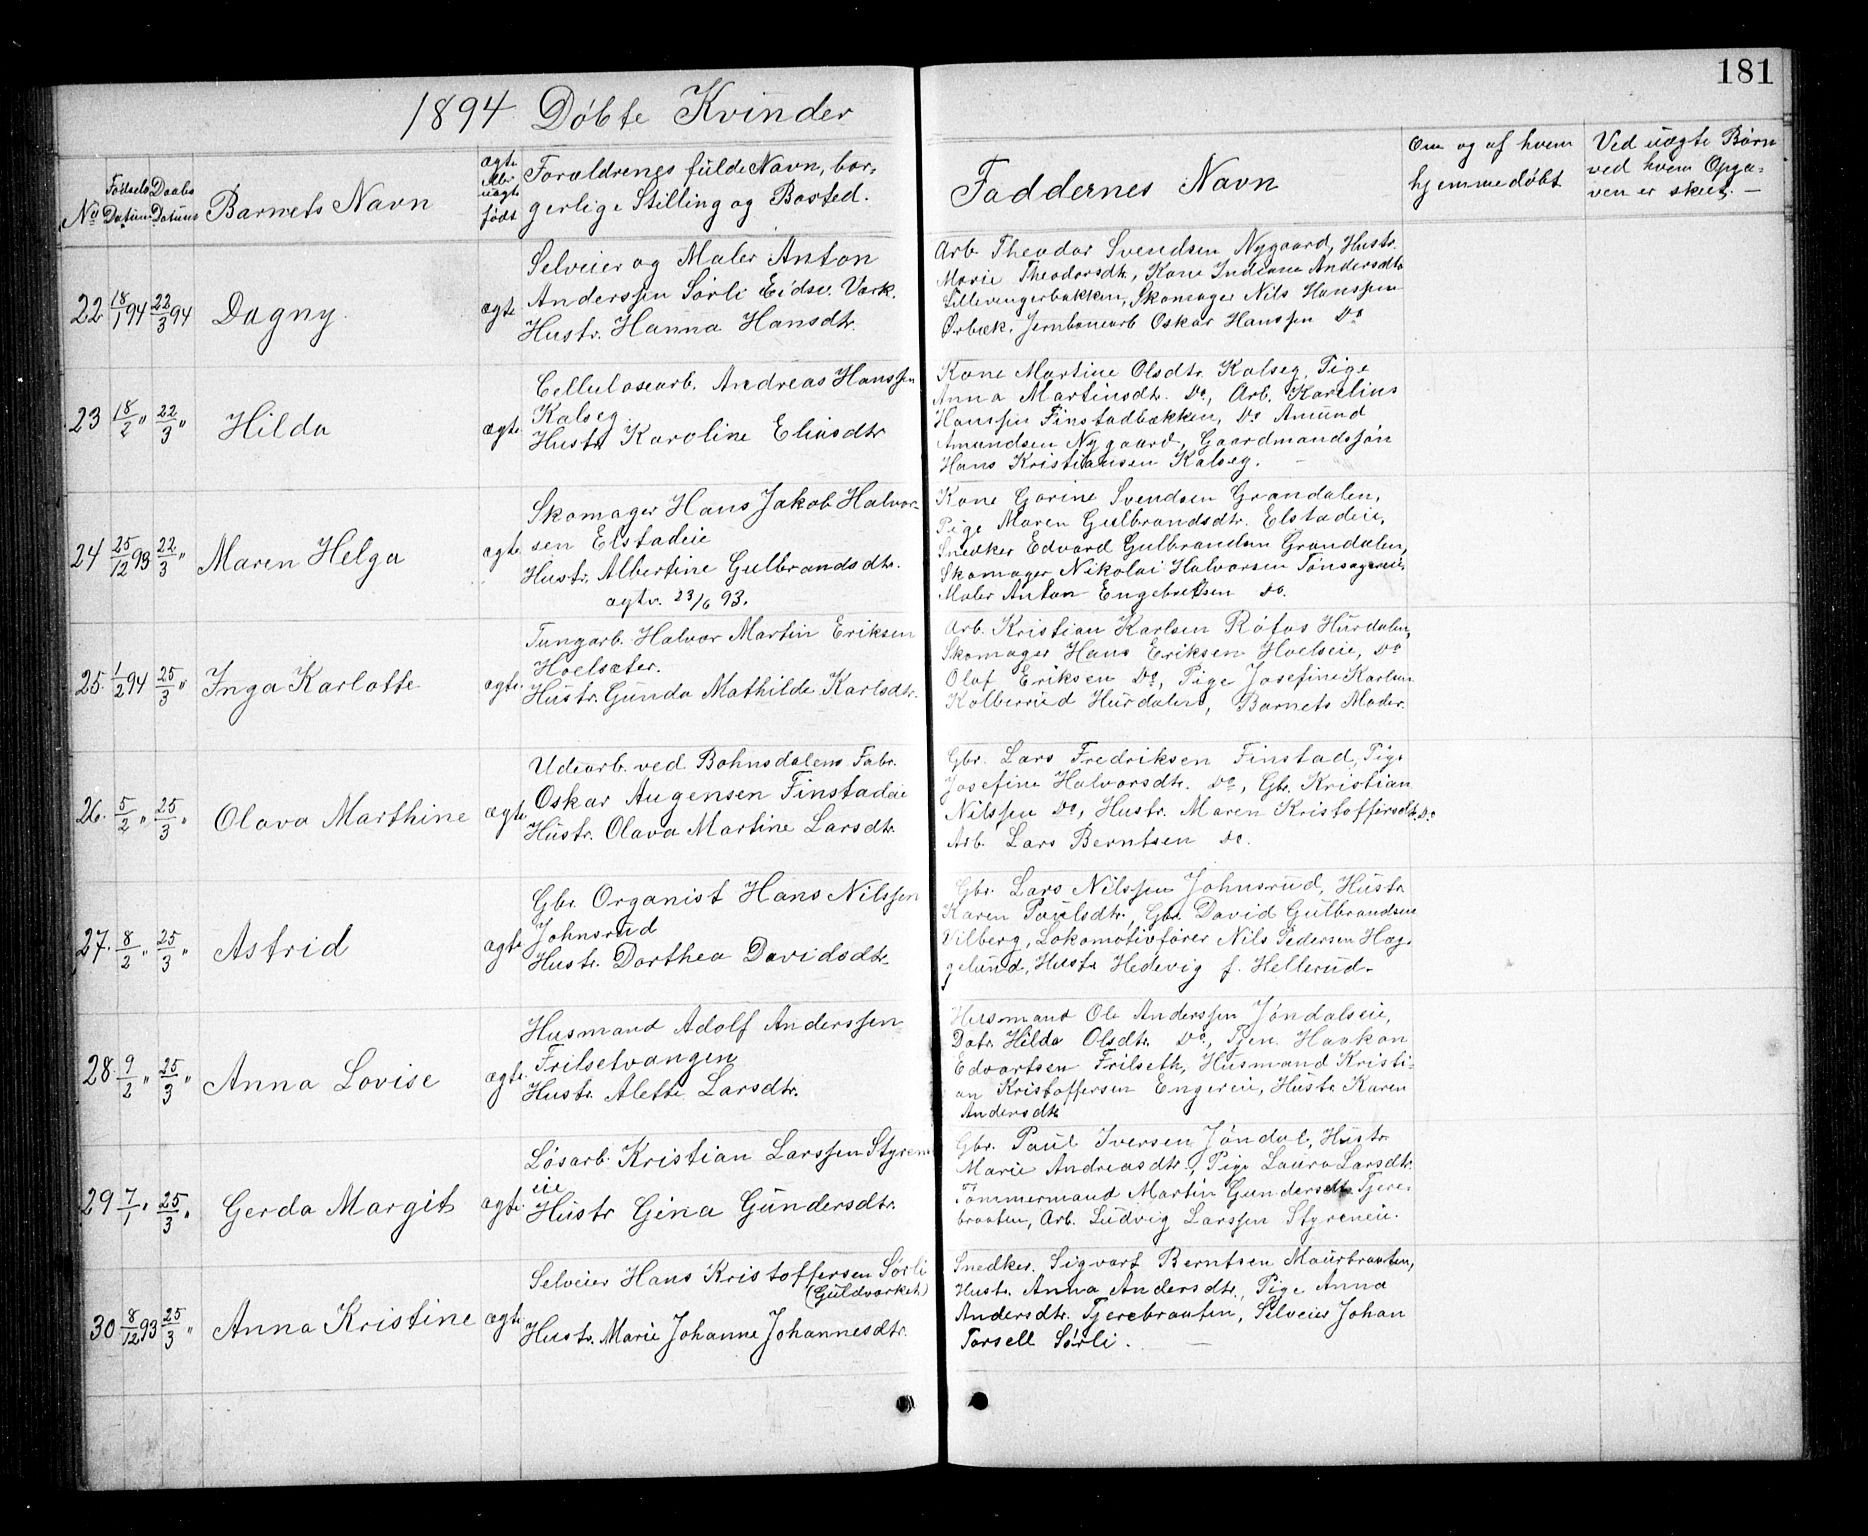 181
1894 Døbte Kvinder
No
Fødsels Datum
Daabs Datum
Barnets Navn
ægte eller uægte født
Forældrenes fulde Navn, bor-
gerlige Stilling og Bosted.
Faddernes Navn
Om og af hvem
hjemmedøbt
Ved uægte Børn
ved hvem Opga-
ven er skeet. —
22 18/1 94 22/3 94 Dagny ægte
Selveier og Maler Anton
Anderssen Sørli Eidsv. Værk.
Hustr. Hanna Hansdtr.
Arb. Theodor Svendsen Nygaard, Hustr.
Marie Theodorsdtr, Kone Indiana Andersdtr
Lillevengerbakken, Skomager Nils Hanssen
Ørbæk. Jernbanearb Oskar Hanssen Do
23 18/2 " 22/3 " Hilda ægte
Cellulosearb. Andreas Hanssen
Kalseg
Hustr Karoline Eliasdtr
Kone Martine Olsdtr. Kalseg, Pige
Anna Martinsdtr. Do, Arb. Karelius
Hanssen Finstadbækken, Do Amund
Amundsen Nygaard, Gaardmandssøn
Hans Kristiansen Kalseg. —
24 25/12 93 22/3 " Maren Helga ægte
Skomager Hans Jakob Halvor-
sen Elstadeie
Hustr. Albertine Gulbrandsdtr.
ægtv. 23/6 93.
Kone Gorine Svendsen Grandalen,
Pige Maren Gulbrandsdtr. Elstadeie,
Snedker Edvard Gulbrandsen Grandalen,
Skomager Nikolai Halvorsen Tønsagereie,
Maler Anton Engebretsen do.
25. 1/2 94 25/3 " Inga Karlotte ægte.
Tungarb. Halvor Martin Eriksen
Hoelsæter.
Hustr. Gunda Mathilde Karlsdtr.
Arb. Kristian Karlsen Røtos Hurdalen,
Skomager Hans Eriksen Hoelseie, Do
Olaf Eriksen Do, Pige Josefine Karlsen
Kolberrud Hurdalen, Barnets Moder.
26. 5/2 " 25/3 " Olava Marthine ægte
Udearb. ved Bøhnsdalens Fabr.
Oskar Augensen Finstadeie
Hustr. Olava Martine Larsdtr.
Gbr. Lars Fredriksen Finstad, Pige
Josefine Halvorsdtr. Do, Gbr. Kristian
Nilssen Do, Hustr. Maren Kristoffersdtr. Do
Arb. Lars Berntsen do.
27. 8/2 " 25/3 " Astrid ægte
Gbr. Organist Hans Nilssen
Johnsrud
Hustr. Dorthea Davidsdtr.
Gbr. Lars Nilssen Johnsrud, Hustr
Karen Paulsdtr., Gbr. David Gulbrandsen
Vilberg, Lokomotivfører Nils Pedersen Hæg-
gelund, Hustr Hedevig f. Hellerud.
28. 9/2 " 25/3 " Anna Lovise ægte.
Husmand Adolf Anderssen
Frilsetvangen
Hustr. Alette Larsdtr.
Husmand Ole Anderssen Jøndalseie,
Datr. Hilda Olsdtr. Do, Tjen. Haakon
Edvartsen Frilseth, Husmand Kristi-
an Kristoffersen Engereie, Hustr Karen
Andersdtr
29 7/1 " 25/3 " Gerda Margit ægte
Løsarb. Kristian Larssen Styren-
eie
Hustr Gina Gundersdtr.
Gbr. Paul Iversen Jøndal, Hustr
Marie Andreasdtr., Pige Laura Larsdtr.
Tømmermand Martin Gundersen Tjere-
braaten, Arb. Ludvig Larssen Styreneie.
30 8/12 93 25/3 " Anna Kristine ægte
Selveier Hans Kristoffersen Sørli
(Guldværket)
Hustr. Marie Johanne Johannesdtr.
Snedker. Sigvart Berntsen Maurbraaten,
Hustr. Anna Andersdtr., Pige Anna
Andersdtr. Tjerebraaten, Selveier Johan
Torsell Sørli. —